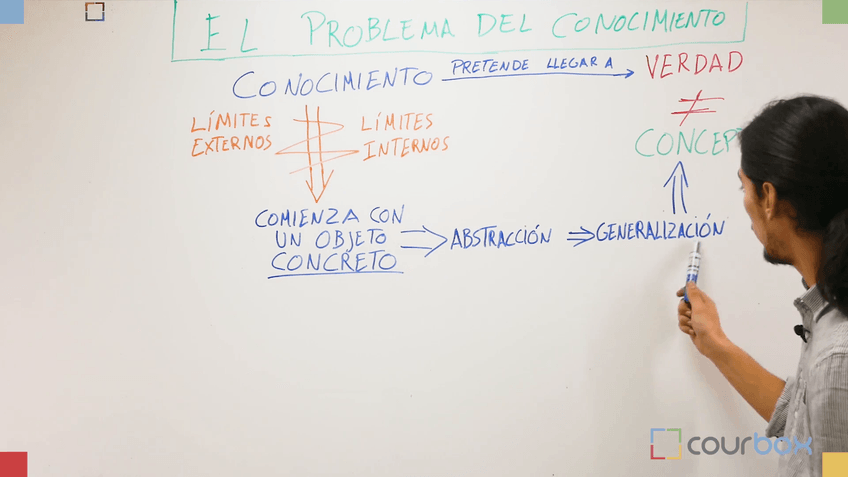 EL PROBLEMA DEL CONOCIMIENTO
CONOCIMIENTO PRETENDE LLEGAR A VERDAD
≠
LÍMITES EXTERNOS
LÍMITES INTERNOS
CONCEP
COMIENZA CON
UN OBJETO
CONCRETO
ABSTRACCIÓN
GENERALIZACIÓN
courbox